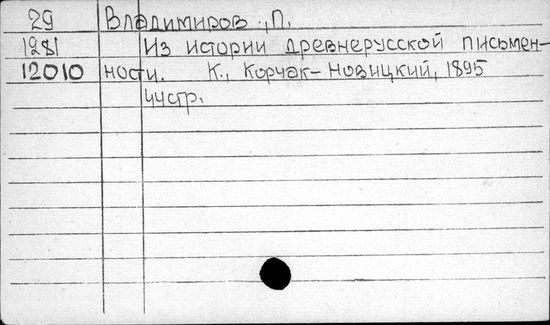 29 Владимиров., П.
1281 Из истории древнерусской письмен-
12010 ности. К., Корчак-Новицкий, 1895
44стр.